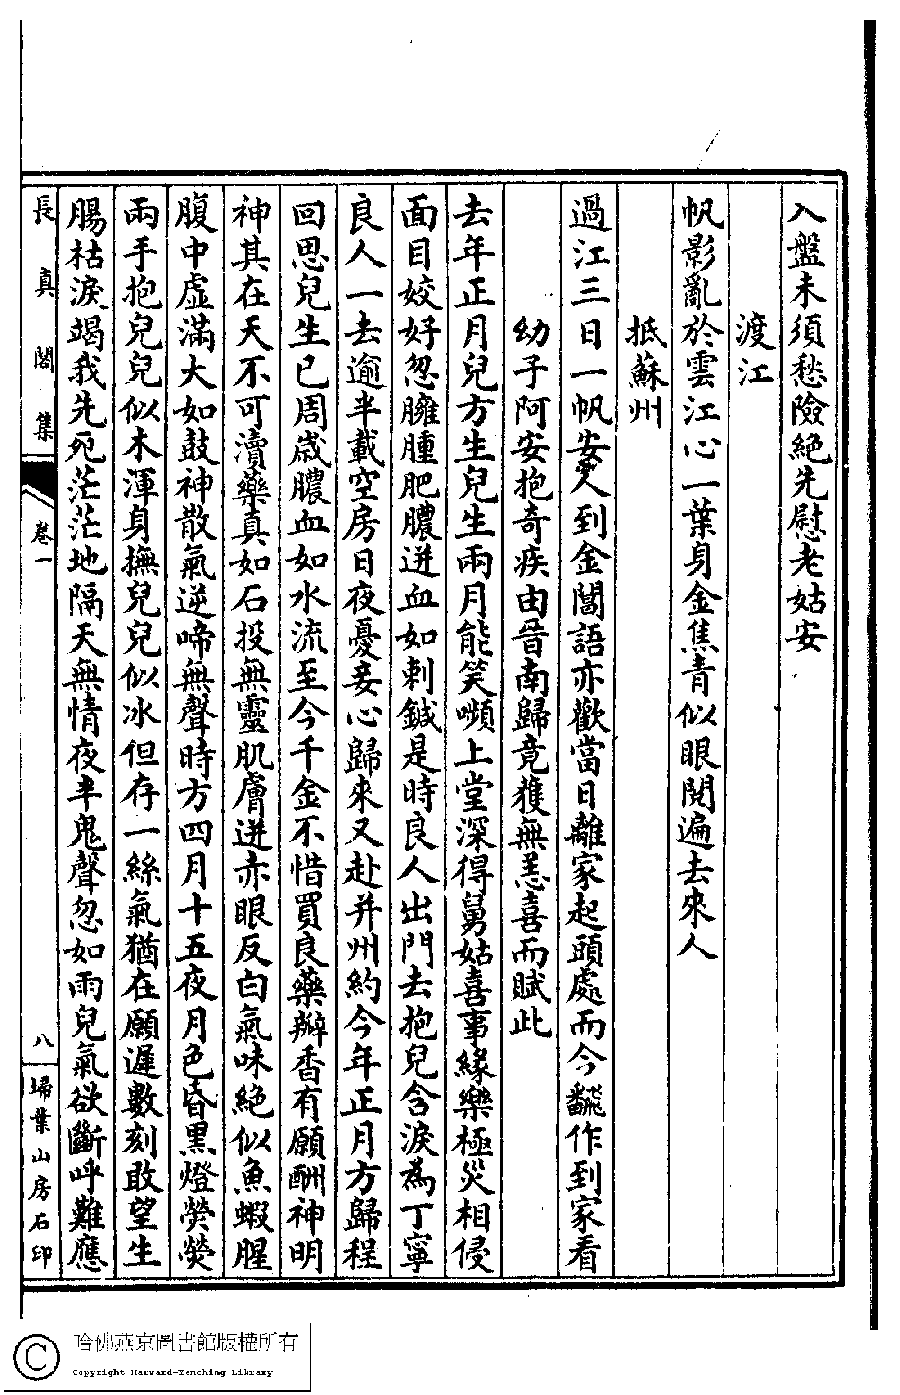 入盤未須愁險絕先慰老姑安
渡江
帆影亂於雲江心一葉身金焦青似眼閱遍去來人
抵蘇州
過江三日一帆安人到金閶語亦歡當日離家起頭處而今翻作到家看
幼子阿安抱奇疾由晉南歸竟獲無恙喜而賦此
去年正月兒方生兒生兩月能笑嚬上堂深得舅姑喜事緣樂極災相侵
面目姣好忽臃腫肥膿迸血如刺鍼是時良人出門去抱兒含淚為丁寧
良人一去逾半載空房日夜憂妾心歸來又赴并州約今年正月方歸程
回思兒生已周歲膿血如水流至今千金不惜買良藥瓣香有願酬神明
神其在天不可瀆藥真如石投無靈肌膚迸赤眼反白氣味絕似魚蝦腥
腹中虛滿大如鼓神散氣逆啼無聲時方四月十五夜月色昏黑燈熒熒
兩手抱兒兒似木渾身撫兒兒似冰但存一絲氣猶在願遲數刻敢望生
腸枯淚竭我先死茫茫地隔天無情夜半鬼聲忽如雨兒氣欲斷呼難應
長真閣集 卷一 八 埽葉山房石印
哈佛燕京圖書館版權所有
Copyright Harvard-Yenching Library